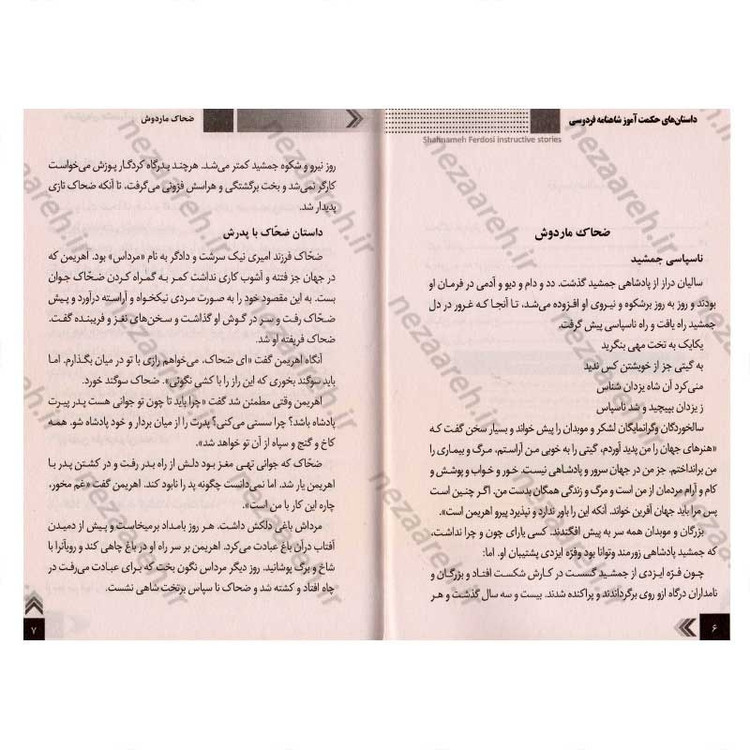 داستان‌های حکمت آموز شاهنامه فردوسی
Shahnameh Ferdosi instructive stories
ضحاک ماردوش
ناسپاسی جمشید
سالیان دراز از پادشاهی جمشید گذشت. دد و دام و دیو و آدمی در فرمان او
بودند و روز به روز برشکوه و نیروی او افزوده می‌شد، تا آنجا که غرور در دل
جمشید راه یافت و راه ناسپاسی پیش گرفت.
یکایک به تخت مهی بنگرید
به گیتی جز از خویشتن کس ندید
منی‌کرد آن شاه یزدان شناس
ز یزدان بپیچید و شد ناسپاس
سالخوردگان وگرانمایگان لشکر و موبدان را پیش خواند و بسیار سخن گفت که
«هنرهای جهان را من پدید آوردم، گیتی را به خوبی من آراستم، مرگ و بیماری را
من برانداختم. جز من در جهان سرور و پادشاهی نیست. خور و خواب و پوشش و
کام و آرام مردمان از من است و مرگ و زندگی همگان بدست من. اگر چنین است
پس مرا باید جهان آفرین خواند. آنکه این را باور ندارد و نپذیرد پیرو اهریمن است».
بزرگان و موبدان همه سر به پیش افگندند. کسی یارای چون و چرا نداشت،
که جمشید پادشاهی زورمند وتوانا بود وفرّه ایزدی پشتیبان او. اما:
چون فرّه ایزدی از جمشید گسست در کارش شکست افتاد و بزرگان و
نامداران درگاه ازو روی برگرداندند و پراکنده شدند. بیست و سه سال گذشت و هر
۶
ضحاک ماردوش
روز نیرو و شکوه جمشید کمتر می‌شد. هرچند بدرگاه کردگار پوزش می‌خواست
کارگر نمی‌شد و بخت برگشتگی و هراسش فزونی می‌گرفت، تا آنکه ضحاک تازی
پدیدار شد.
داستان ضحّاک با پدرش
ضحّاک فرزند امیری نیک سرشت و دادگر به نام «مرداس» بود. اهریمن که
در جهان جز فتنه و آشوب کاری نداشت کمر به گمراه کردن ضحّاک جوان
بست. به این مقصود خود را به صورت مردی نیکخواه و آراسته درآورد و پیش
ضحّاک رفت و سر در گوش او گذاشت و سخن‌های نغز و فریبنده گفت.
ضحّاک فریفته او شد.
آنگاه اهریمن گفت «ای ضحاک، می‌خواهم رازی با تو در میان بگذارم. اما
باید سوگند بخوری که این راز را با کشی نگوئی». ضحاک سوگند خورد.
اهریمن وقتی مطمئن شد گفت «چرا باید تا چون تو جوانی هست پدر پیرت
پادشاه باشد؟ چرا سستی می‌کنی؟ پدرت را از میان بردار و خود پادشاه شو. همه
کاخ و گنج و سپاه از آن تو خواهد شد».
ضحّاک که جوانی تهی مغز بود دلش از راه بدر رفت و در کشتن پدر با
اهریمن یار شد. اما نمی‌دانست چگونه پدر را نابود کند. اهریمن گفت «غم مخور،
چاره این کار با من است».
مرداش باغی دلکش داشت. هر روز بامداد برمیخاست و پیش از دمیدن
آفتاب درآن باغ عبادت می‌کرد. اهریمن بر سر راه او در باغ چاهی کند و رویآنرا با
شاخ و برگ پوشانید. روز دیگر مرداس نگون بخت که برای عبادت می‌رفت در
چاه افتاد و کشته شد و ضحاک نا سپاس برتخت شاهی نشست.
۷
nezaareh.ir